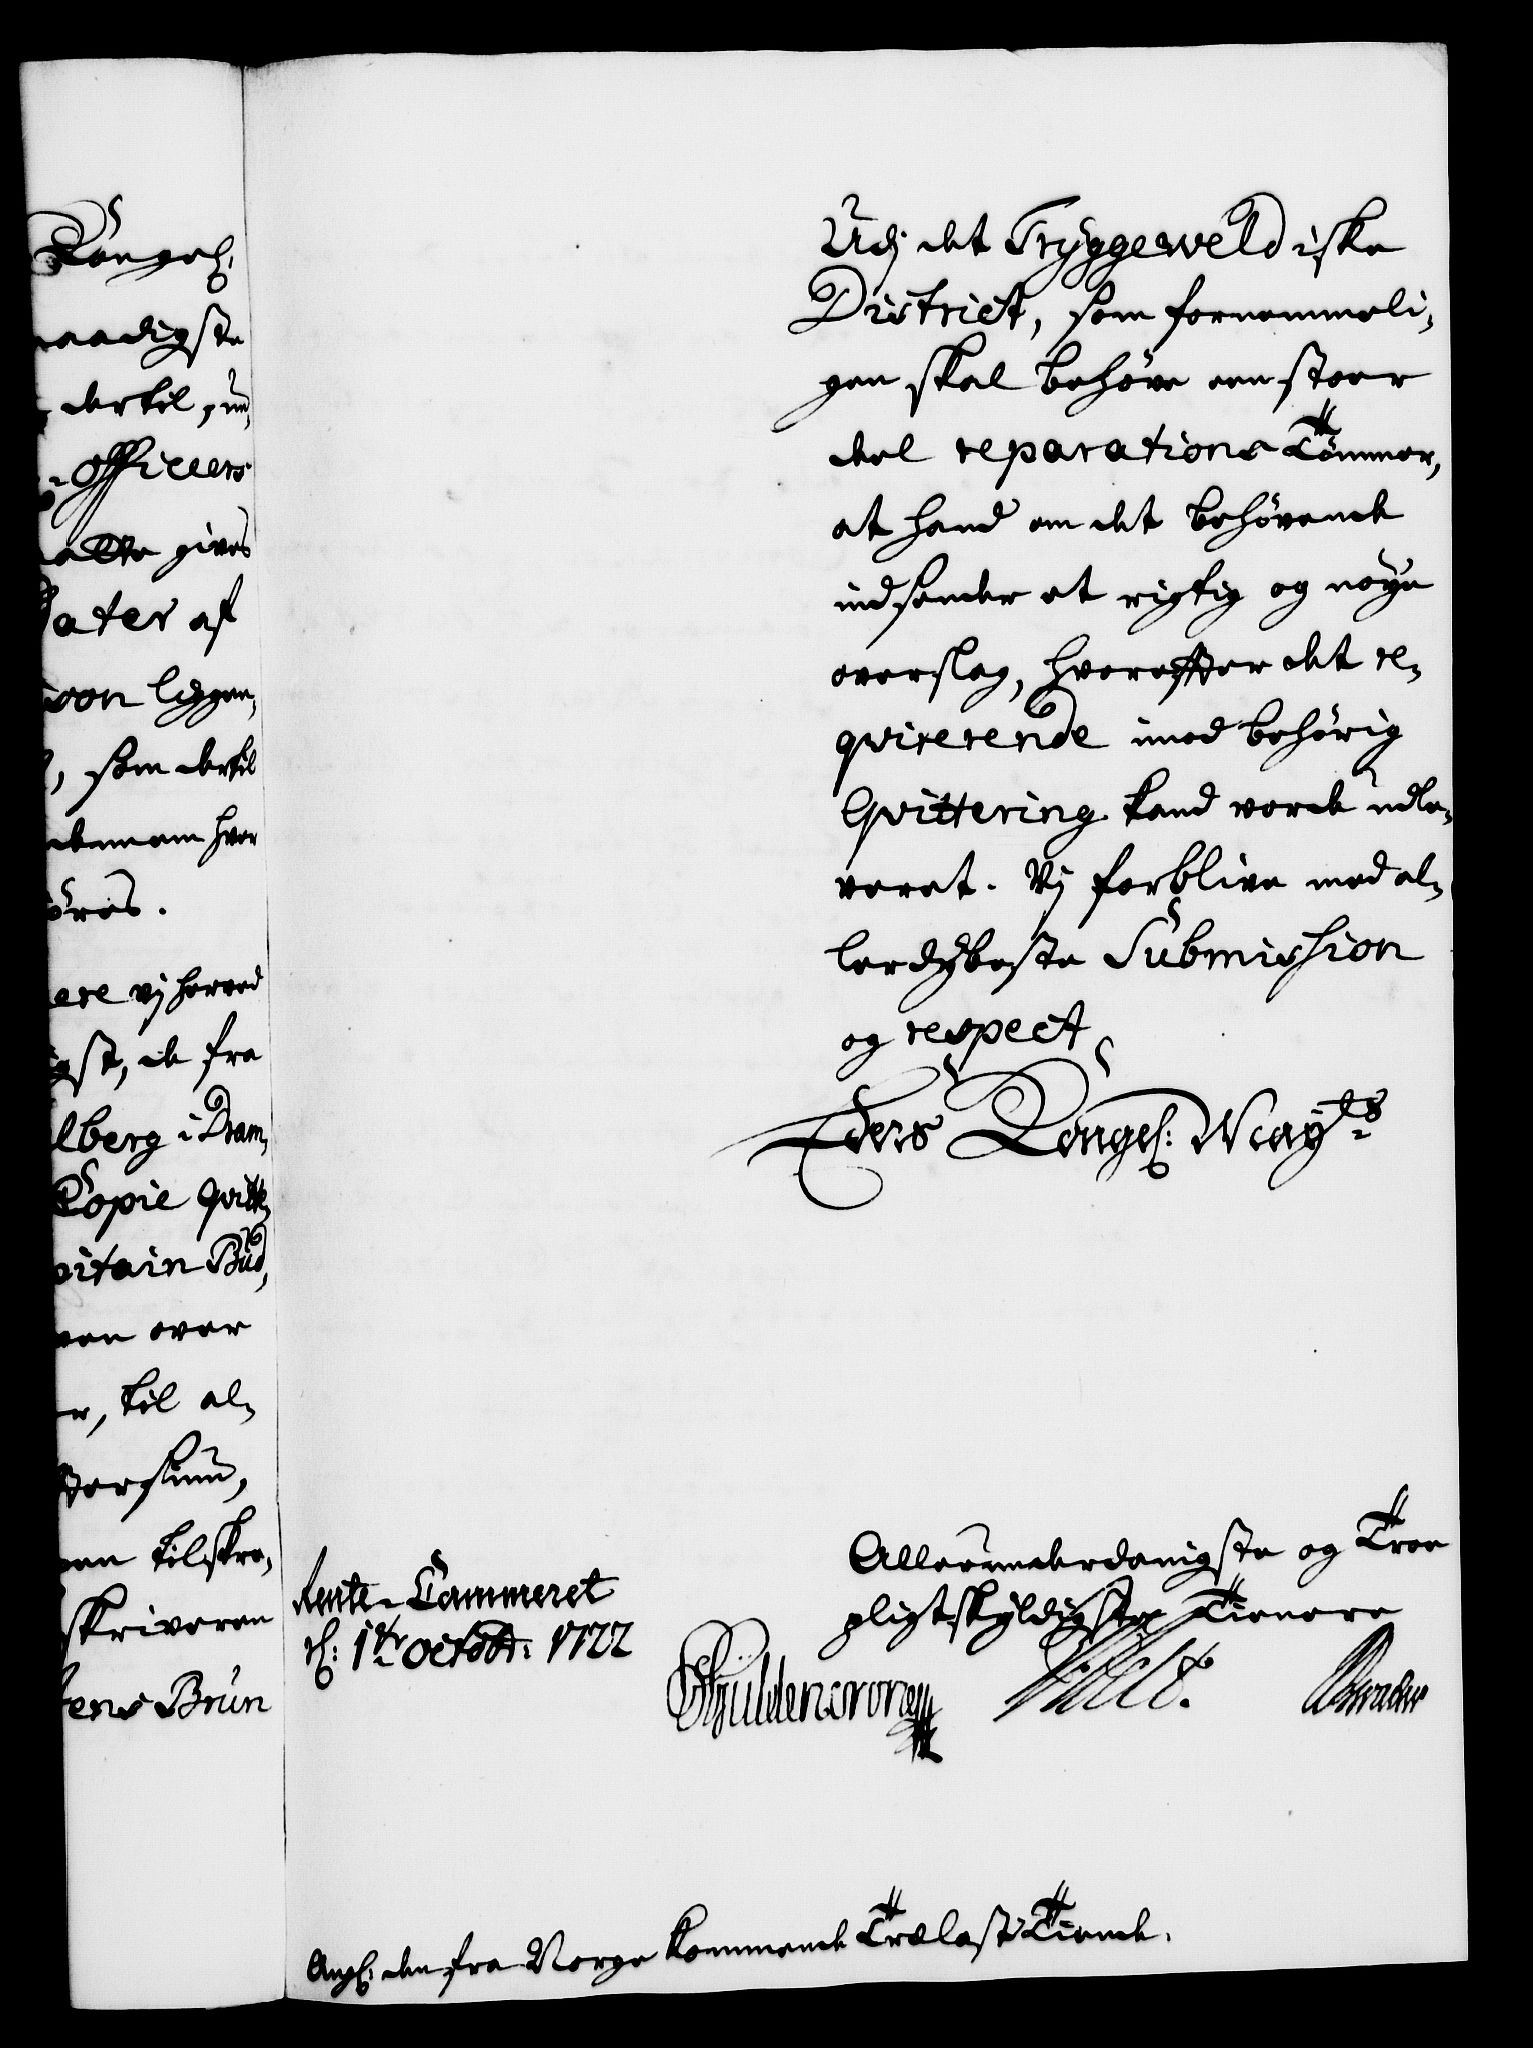 Kongel:
naadigste
dertil gun,
officeers
satte gives
dater af
von liggen,
, som dertil
dennem hver
öres.
ere vij herved
gst, de fra
lberg i Dram,
Copie qvitt,
pitain Bud,
ven over
r, til al,
ter
en tilskre,
skriveren
Jens Brun
Udj det Tryggeweldiske
District, som fornemmeli,
gen skal behöve een stoer
deel reparations Tömmer,
at hand om det behövende
indsender et rigtig og nöye
overslag, hvorefter det re,
qvirerende imod behörig
Qvittering kand vorde udle,
veret. Vij forblive med al,
lerdybeste Submission
og respect
Eders Kongel: Mayts
Allerunderdanigste og Troe
pligtskyldigste Tienere
Rente-Cammeret
d: 1te octobr: 1722
Güldencrone
Ang: den fra Norge kommende Trælast Tiende.